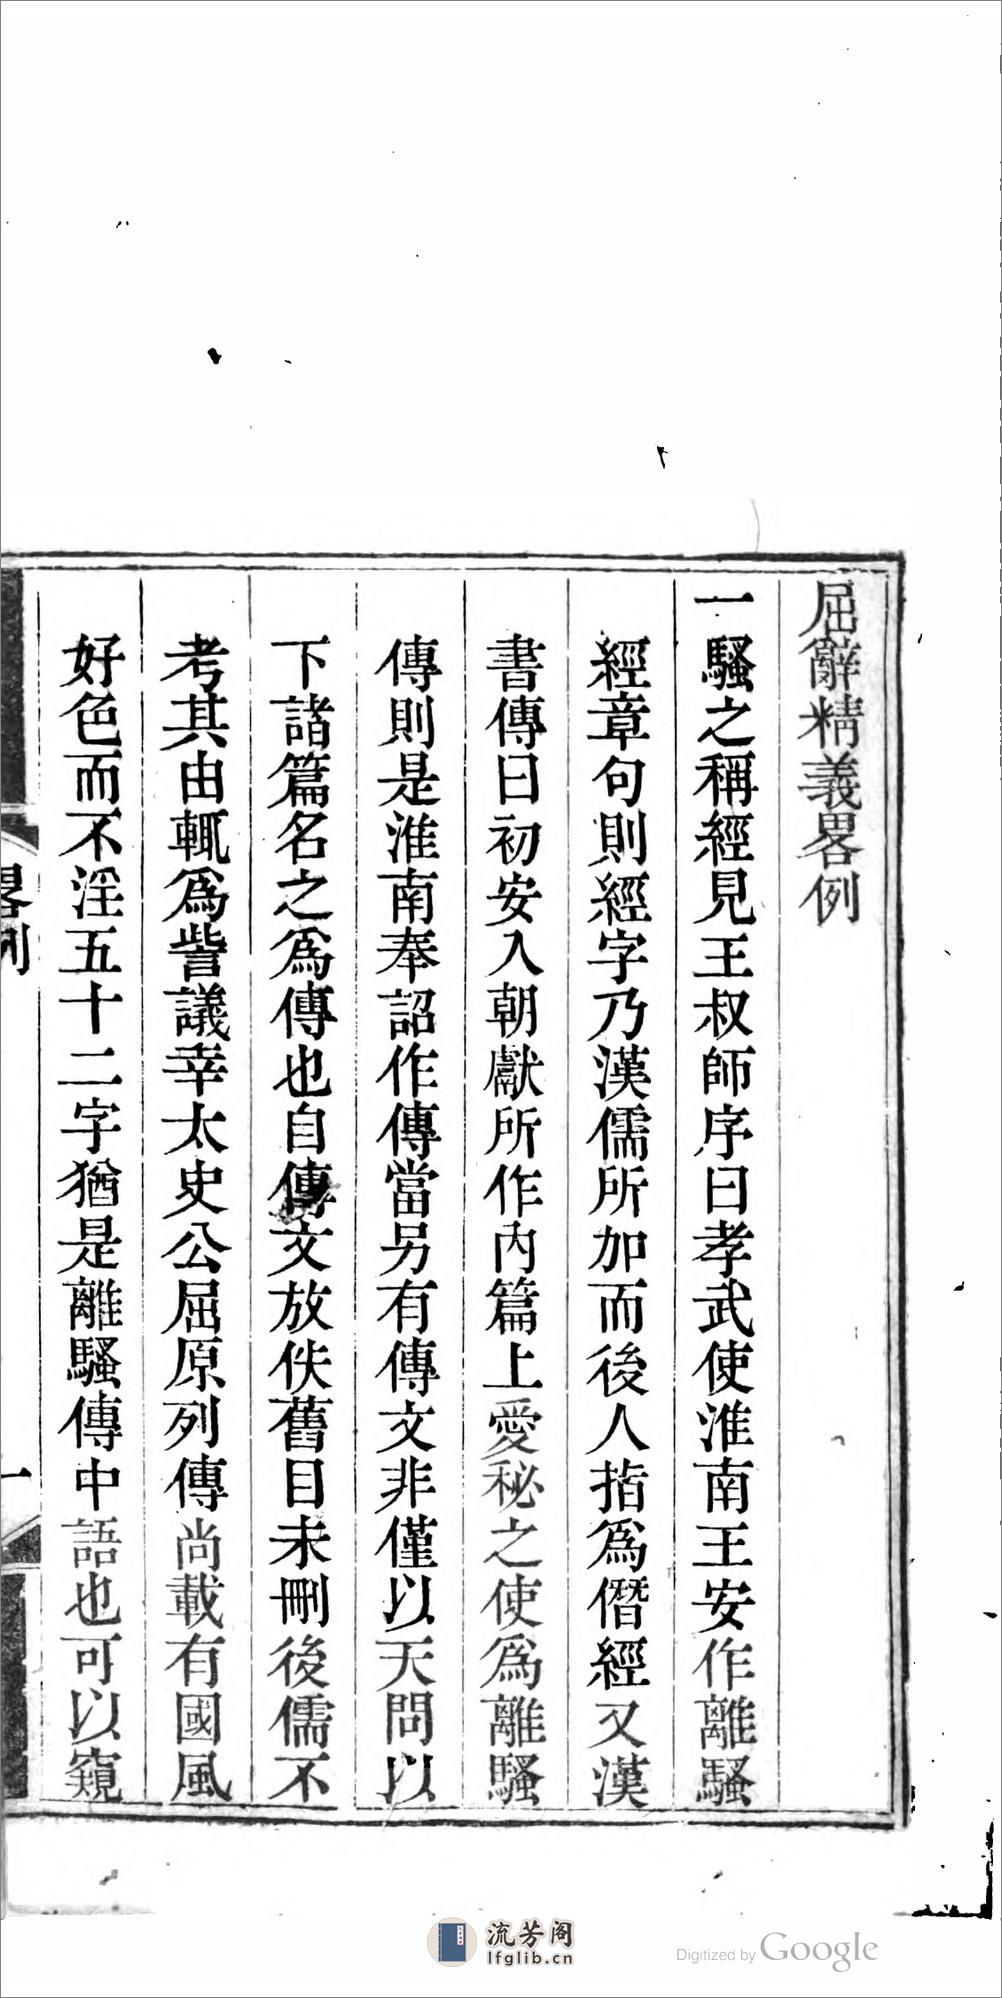 屈辭精義畧例
一騷之稱經見王叔師序曰孝武使淮南王安作離騷
經章句則經字乃漢儒所加而後人指爲僭經又漢
書傳曰初安入朝獻所作內篇上愛秘之使爲離騷
傳則是淮南奉詔作傳當另有傳文非僅以天問以
下諸篇名之爲傳也自傳文放佚舊目未刪後儒不
考其由輒爲訾議幸太史公屈原列傳尚載有國風
好色而不淫五十二字猶是離騷傳中語也可以窺
畧例
一
流芳阁
lfglib.cn
Digitized by Google